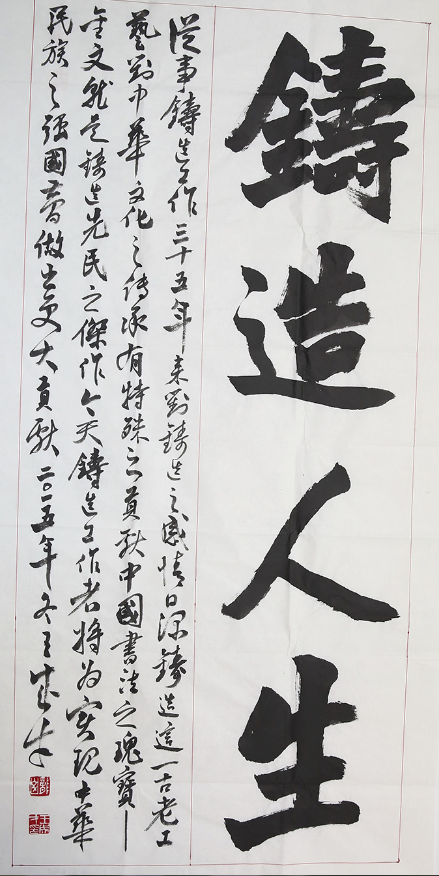 鑄造人生
從事鑄造工作三十五年来對鑄造之感情日深鑄造這一古老工
藝對中華文化之傳承有特殊之貢献中國書法之瑰寶—
金文就是鑄造先民之傑作今天鑄造工作者將为实现中華
民族之强國夢做出更大貢献二〇一五年冬王成